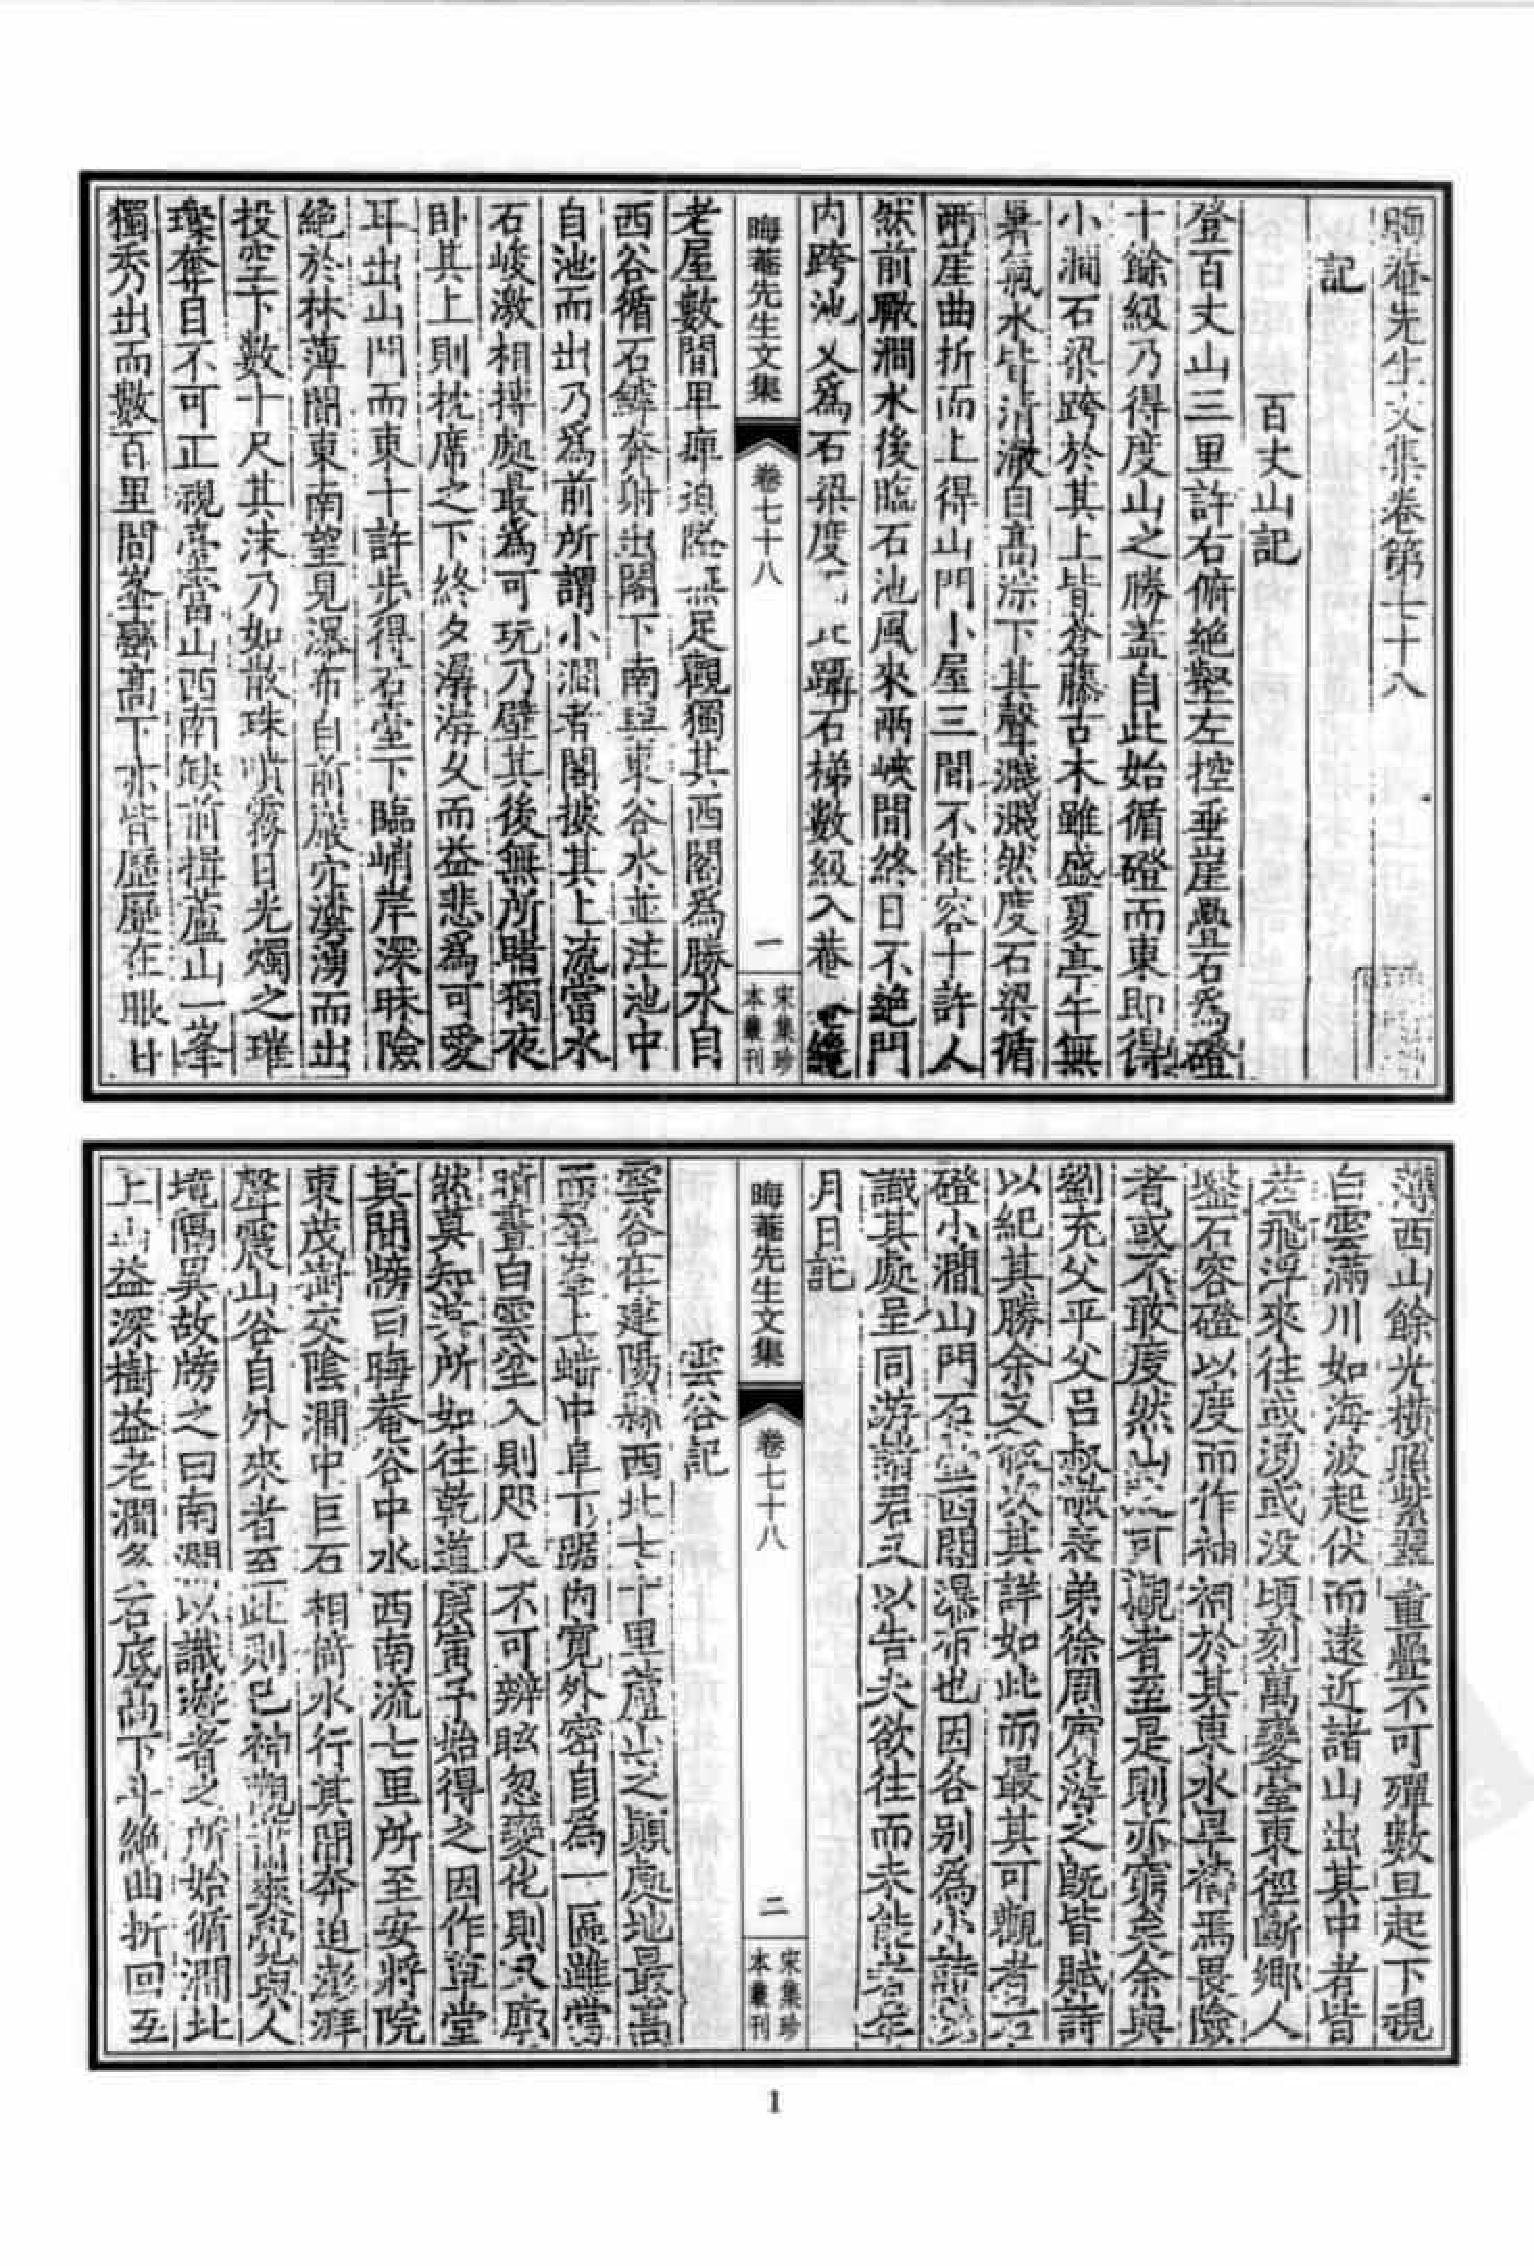 晦菴先生文集卷第七十八
記
百丈山記
登百丈山三里許右俯絶壑左控垂崖疊石爲磴
十餘級乃得度山之勝蓋自此始循磴而東即得
小澗石梁跨於其上皆蒼藤古木雖盛夏亭午無
暑氣水皆清澈自高淙下其聲濺濺然度石梁循
兩崖曲折而上得山門小屋三間不能容十許人
然前瞰澗水後臨石池風來兩峽間終日不絶門
内跨池又爲石梁度而北躡石梯數級入菴菴纔
晦菴先生文集
卷七十八
一
宋集珍
本叢刊
老屋數間卑庳迫隘無足觀獨其西閣爲勝水自
西谷循石罅奔射出閣下南與東谷水並注池中
自池而出乃爲前所謂小澗者閣據其上流當水
石峻激相搏處最爲可玩乃壁其後無所睹獨夜
卧其上則枕席之下終夕潺潺久而益悲爲可愛
耳出山門而東十許步得石臺下臨峭岸深昧險
絶於林薄間東南望見瀑布自前巖穴瀵湧而出
投空下數十尺其沫乃如散珠噴霧日光燭之璀
璨奪目不可正視臺當山西南缺前揖蘆山一峯
獨秀出而數百里間峯巒高下亦皆歷歷在眼日
薄西山餘光橫照紫翠重疊不可殫數旦起下視
白雲滿川如海波起伏而遠近諸山出其中者皆
若飛浮來往或湧或没頃刻萬變臺東徑斷鄉人
鑿石容磴以度而作神祠於其東水旱禱焉畏險
者或不敢度然山之可觀者至是則亦窮矣余與
劉充父平父吕叔敬表弟徐周賓游之既皆賦詩
以紀其勝余又叙次其詳如此而最其可觀者石
磴小澗山門石臺西閣瀑布也因各别爲小詩以
識其處呈同游諸君又以告夫欲往而未能者年
月日記
晦菴先生文集
卷七十八
二
宋集珍
本叢刊
雲谷記
雲谷在建陽縣西北七十里蘆山之顛處地最高
而羣峯上蟠中阜下踞内寬外密自爲一區雖當
晴晝白雲坌入則咫尺不可辨眩忽變化則又廓
然莫知其所如往乾道庚寅予始得之因作草堂
其間牓曰晦菴谷中水西南流七里所至安將院
東茂樹交陰澗中巨石相倚水行其間奔迫澎湃
聲震山谷自外來者至此則已神觀蕭爽覺與人
境隔異故牓之曰南澗以識遊者之所始循澗北
上山益深樹益老澗多石底高下斗絶曲折回互